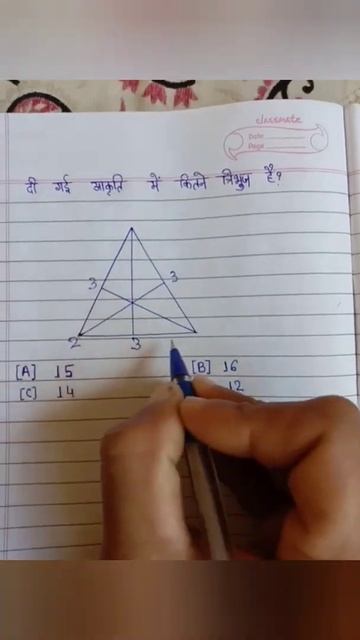 classmate
Date
Page
दी गई आकृति में कितने त्रिभुज है?
3 3
2 3
[A] 15 [B] 16
[C] 14 12